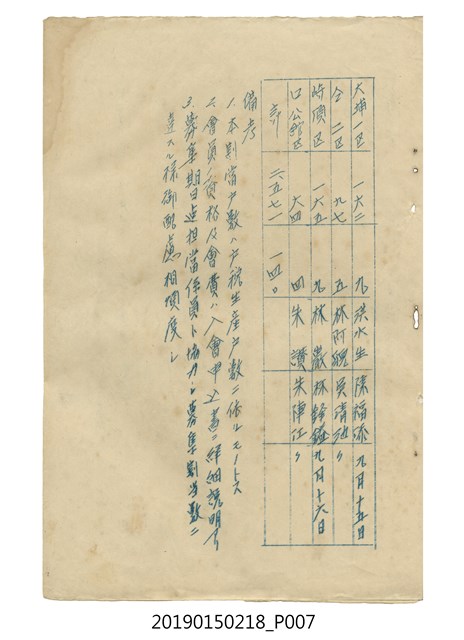 大埔一区 一六二 九 洪水生 陳福添 九月十五日
仝 二区 九七 五 林阿𫃎 吳清池 〃
崎頂区 一六五 九 林 嚴 林錦鏞 九月十六日
口公館区 六四 四 朱 讚 朱陣江 〃
計 二五七一 一四〇
備考
1. 本割當戶數ハ戶稅生産戶數ニ依ルモノトス
2. 會員ノ資格及會費ハ入會申込書ニ詳細說明ス
3. 募集期日迄担當係員ト協力シ募集割当數ニ
達スル樣御配慮相煩度シ
20190150218_P007